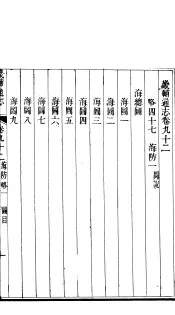 畿輔通志卷九十二
略四十七 海防一 圖說
海總圖
海圖一
海圖二
海圖三
海圖四
海圖五
海圖六
海圖七
海圖八
海圖九
卷九十二 海防略一 圖目